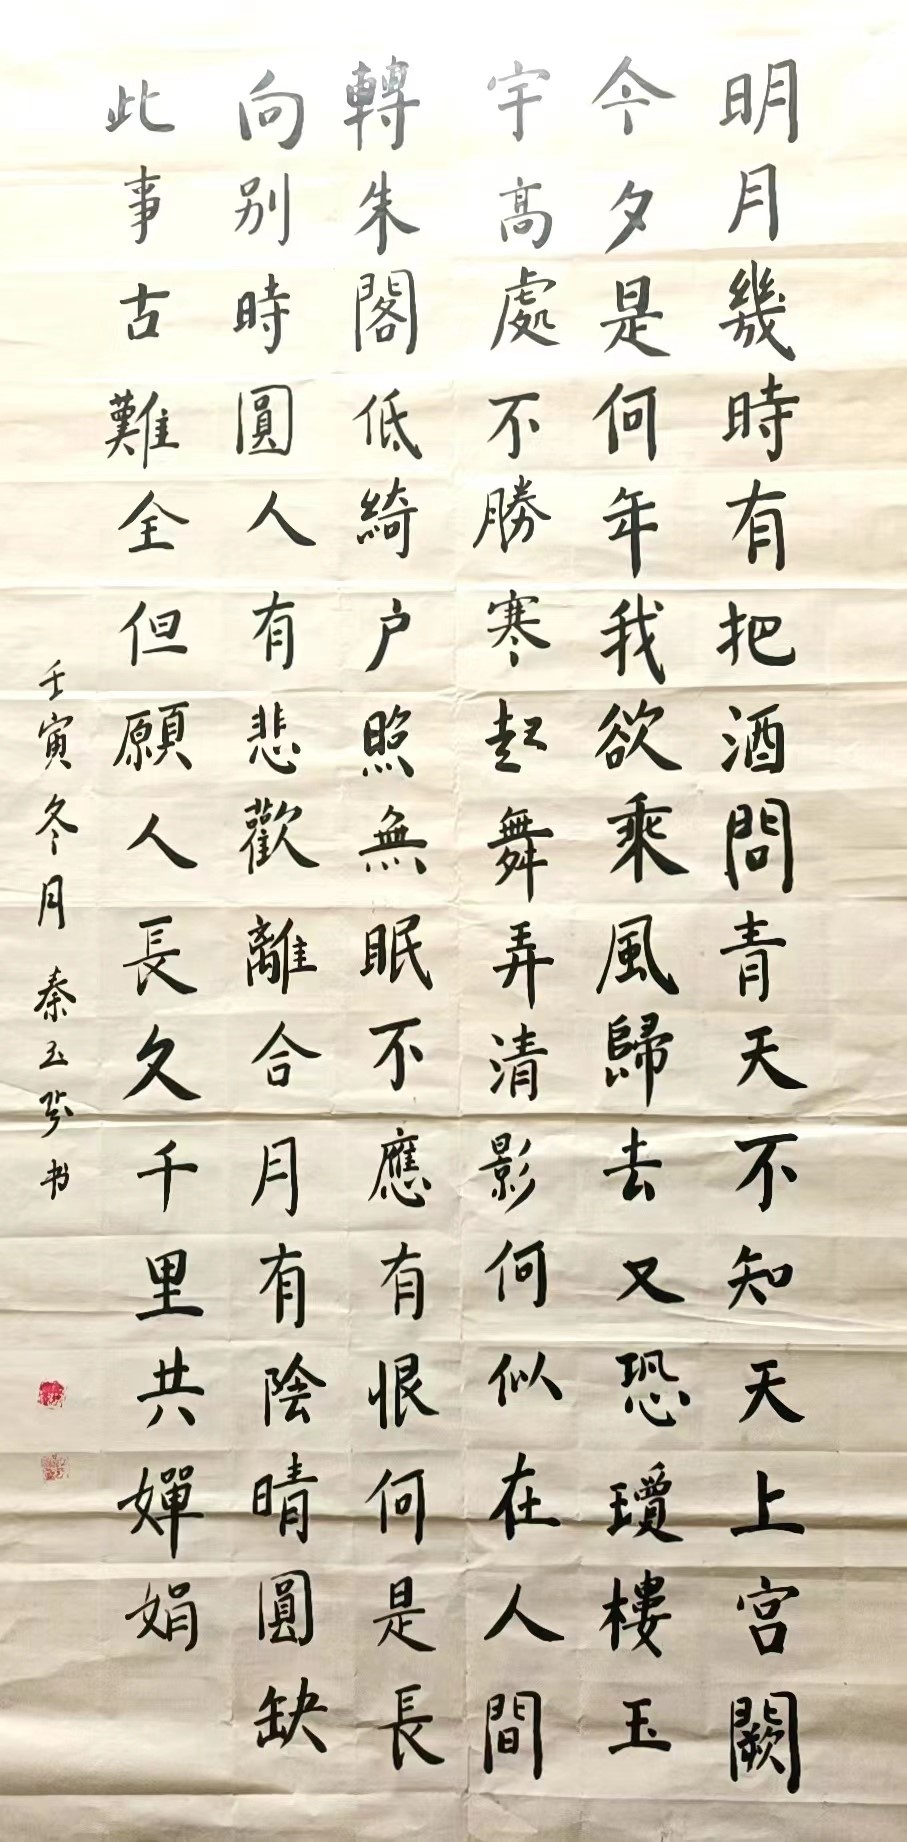 明月幾時有把酒問青天不知天上宮闕
今夕是何年我欲乘風歸去又恐瓊樓玉
宇髙處不勝寒起舞弄清影何似在人間
轉朱閣低綺户照無眠不應有恨何是長
向别時圓人有悲歡離合月有陰晴圓缺
此事古難全但願人長久千里共嬋娟
壬寅冬月 秦玉芬书